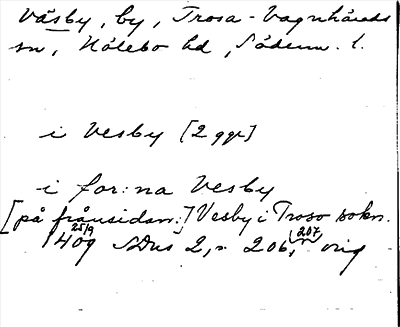 Väsby, by, Trosa-Vagnhärads
sn, Hölebo hd, Söderm. l.
i Vesby [2 ggr]
i for:na Vesby
[på frånsidan:] Vesby i Troso sokn.
1409 25/9 SDns 2, s. 206, 207 orig